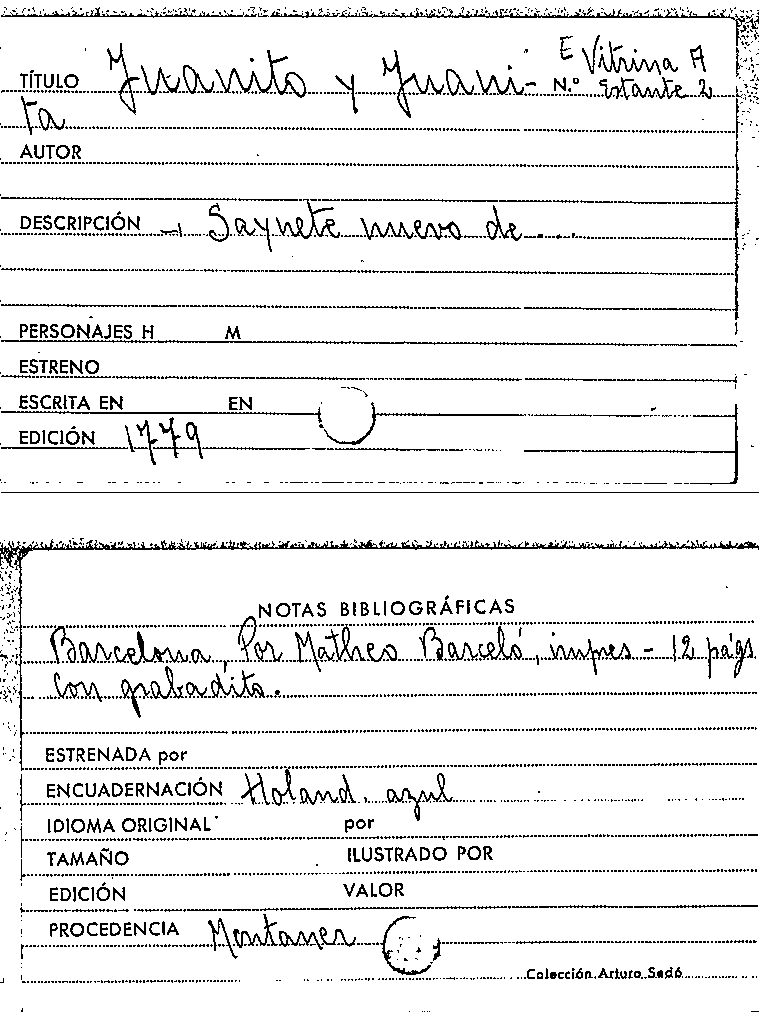 TÍTULO Juanito y Juani- E Vitrina A
N.º Estante 2
ta
AUTOR
DESCRIPCIÓN → Saynete nuevo de ....
PERSONAJES H M
ESTRENO
ESCRITA EN EN
EDICIÓN 1779
NOTAS BIBLIOGRÁFICAS
Barcelona, Por Matheo Barceló, impres - 12 págs
con grabadito.
ESTRENADA por
ENCUADERNACIÓN Holand. azul
IDIOMA ORIGINAL por
TAMAÑO ILUSTRADO POR
EDICIÓN VALOR
PROCEDENCIA Montaner
Colección Arturo Sedó